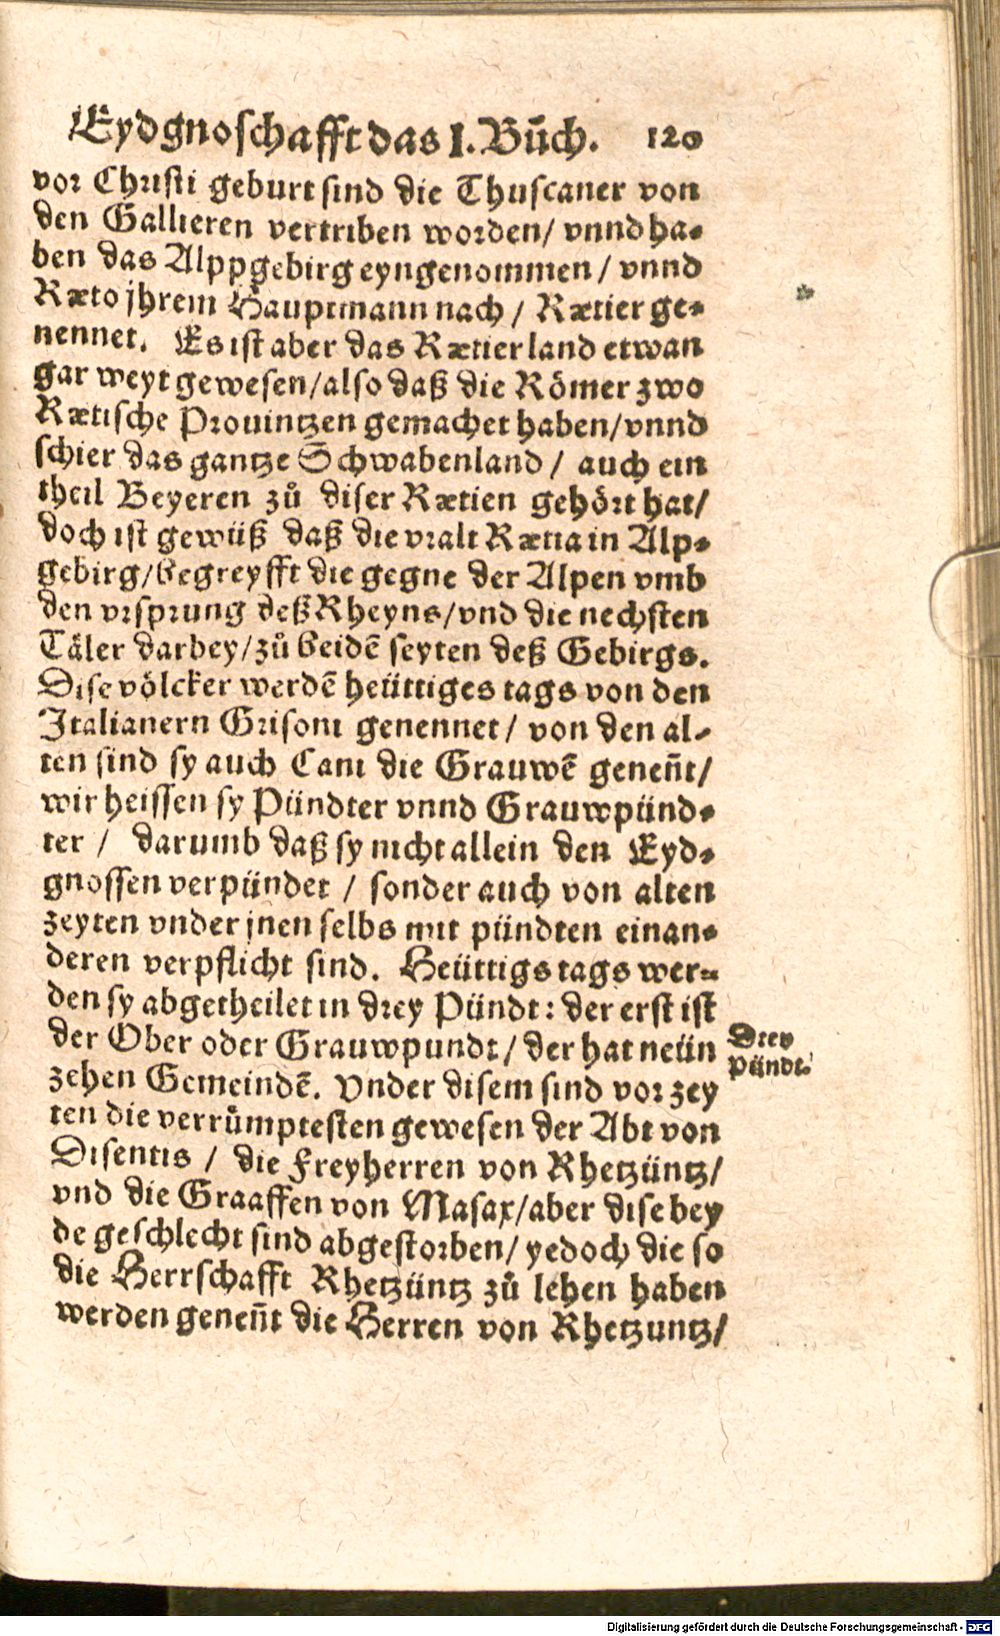 Eydgnoschafft das I. Bůch. 120
vor Christi geburt sind die Thuscaner von
den Gallieren vertriben worden/ vnnd ha-
ben das Alppgebirg eyngenommen / vnnd
Ræto jhrem Hauptmann nach / Rætier ge-
nennet. Es ist aber das Rætier land etwan
gar weyt gewesen/also daß die Römer zwo
Rætische Prouintzen gemachet haben/vnnd
schier das gantze Schwabenland / auch ein
theil Beyeren zů diser Rætien gehört hat/
doch ist gewüß daß die vralt Rætia in Alp-
gebirg/begreyfft die gegne der Alpen vmb
den vrsprung deß Rheyns/vnd die nechsten
Täler darbey/zů beidē seyten deß Gebirgs.
Dise völcker werdē heüttiges tags von den
Italianern Grisoni genennet/ von den al-
ten sind sy auch Cani die Grauwē geneñt/
wir heissen sy Pündter vnnd Grauwpünd-
ter / darumb daß sy nicht allein den Eyd-
gnossen verpündet / sonder auch von alten
zeyten vnder jnen selbs mit pündten einan-
deren verpflicht sind. Heüttigs tags wer-
den sy abgetheilet in drey Pündt: der erst ist
der Ober oder Grauwpundt/ der hat neün
zehen Gemeindē. Vnder disem sind vor zey
ten die verrůmptesten gewesen der Abt von
Disentis / die Freyherren von Rhetzüntz/
vnd die Graaffen von Masax/aber dise bey
de geschlecht sind abgestorben/ yedoch die so
die Herrschafft Rhetzüntz zů lehen haben
werden geneñt die Herren von Rhetzuntz/
Drey
Pündt.
Digitalisierung gefördert durch die Deutsche Forschungsgemeinschaft - DFG